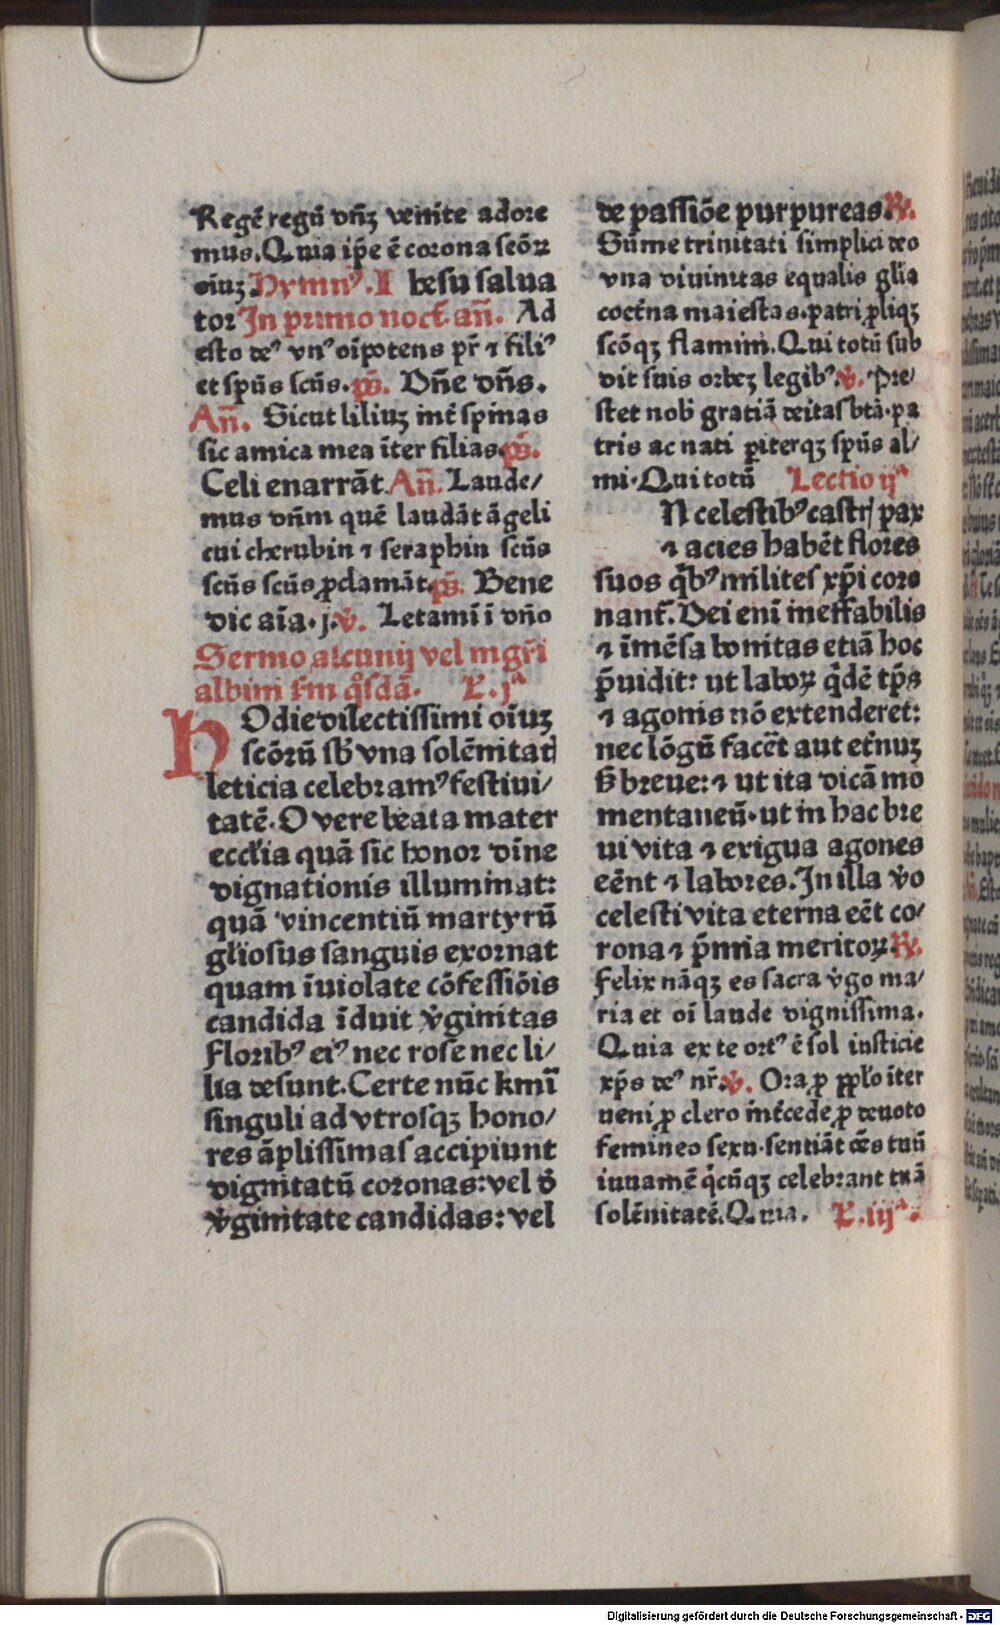 Regē regū dn̄ꝫ venite adore
mus. Quia ip̄e ē corona sc̄oꝝ
oīuꝫ Hymnꝰ. I hesu salua
tor In primo noct̄. añ. Ad
esto deꝰ vnꝰ oīpotens pr̄ ⁊ filiꝰ
et sp̄us sc̄us. pš. Dn̄e dn̄s.
Añ. Sicut liliuꝫ int̄ spinas
sic amica mea īter filias pš.
Celi enarrāt Añ. Laude/
mus dn̄m quē laudāt āgeli
cui cherubin ⁊ seraphin sc̄us
sc̄us sc̄us ꝓclamāt pš. Bene
dic aīa. j. ꝟ. Letamī ī dn̄o
Sermo alcunij vel mgr̄i
albini sm̄ qͦsdā. L. jª
HOdie dilectissimi oīuꝫ
sc̄oꝝū sb̄ vna solēnitat
leticia celebramꝰ festiui/
tatē. O vere beata mater
eccl̄ia quā sic honor diīne
dignationis illuminat:
quā vincentiū martyrū
gl̄iosus sanguis exornat
quam īuiolate cōfessiōis
candida īduit ꝟginitas
Floribꝰ eiꝰ nec rose nec li/
lia desunt. Certe nūc kmī
singuli ad vtrosqꝫ hono/
res āplissimas accipiunt
dignitatū coronas: vel d̄
ꝟginitate candidas: vel
de passiōe purpureas. ℟.
Sūme trinitati simplici deo
vna diuinitas equalis gl̄ia
coet̄na maiestas. patri ꝓliqꝫ
sc̄oqꝫ flamini. Qui totū sub
dit suis orbeꝫ legibꝰ. ꝟ. Pre/
stet nob̄ gratiā deitas bt̄a. pa
tris ac nati ꝑiterqꝫ sp̄us al/
mi. Qui totū Lectio ijª
N celestibꝰ castrꝭ pax
⁊ acies habēt flores
suos qͥbꝰ milites xp̄i coro
nant̄. Dei enī ineffabilis
⁊ īmēsa bonitas etiā hoc
p̄uidit: ut laboꝝ qͥdē tp̄s
⁊ agonis nō extenderet:
nec lōgū facēt aut et̄nuꝫ
s̄ breue: ⁊ ut ita dicā mo
mentaneū. ut in hac bre
ui vita ⁊ exigua agones
eēnt ⁊ labores. In illa v̊o
celesti vita eterna eēt co/
rona ⁊ p̄mia meritoꝝ ℟.
Felix nāqꝫ es sacra ꝟgo ma/
ria et oī laude dignissima.
Quia ex te ortꝰ ē sol iusticie
xp̄s deꝰ nr̄. ꝟ. Ora ꝓ ppl̄o iter
ueni ꝓ clero int̄cede ꝓ deuoto
femineo sexu. sentiāt oēs tuū
iuuamē qͥcūqꝫ celebrant tuā
solēnitatē. Quia. L. iijª.
Digitalisierung gefördert durch die Deutsche Forschungsgemeinschaft - DFG